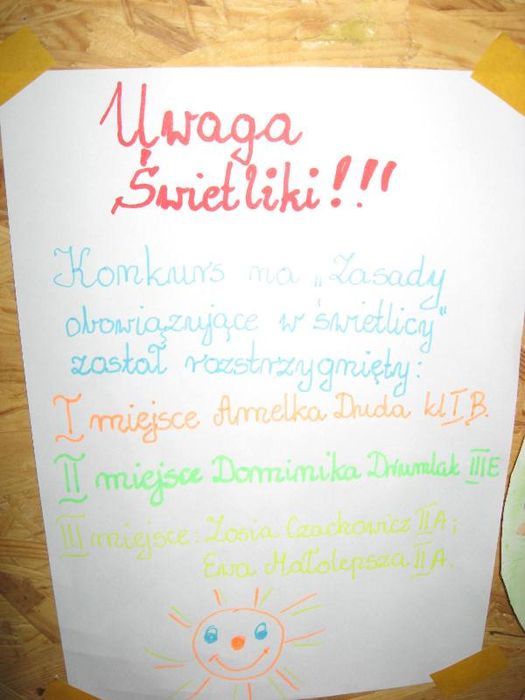 Uwaga
Świetliki!!!
Konkurs na „Zasady
obowiązujące w świetlicy"
został rozstrzygnięty:
I miejsce Amelka Duda kl I B.
II miejsce Dominika Driumlak III E
III miejsce: Zosia Czackowicz II A;
Ewa Małolepsza II A.